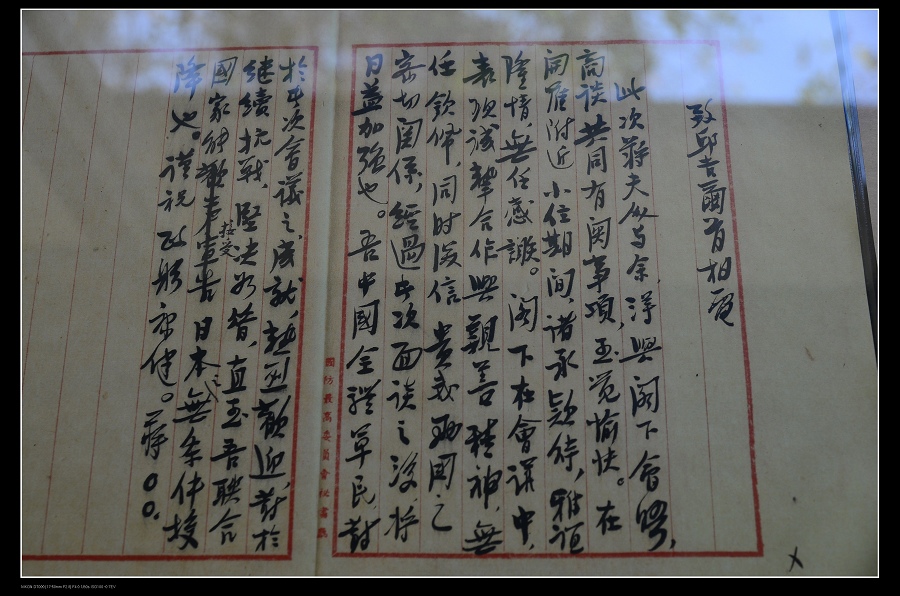 致邱吉爾首相電
此次蔣夫人与余,得與閣下會晤,
商談共同有關事項,至覺愉快。在
開羅附近小住期間,諸承款待,雅誼
隆情無任感謝。閣下在會議中,
表現誠摯合作與親善精神,無
任欽佩,同時深信 貴我兩國之
密切關係,經過此次面談之後,将
日益加強也。吾中國全體軍民,對
國防最高委員會秘書廳
於此次會議之成就,熱烈歡迎,對於
繼續抗戰,堅決如昔,直至吾聯合
國家接受日本之無條件投
降也。謹祝 政躬康健。蔣〇〇。